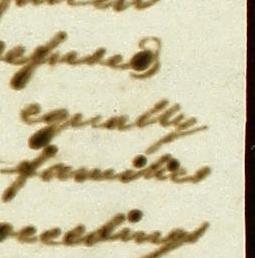 refused
equally
families
proceedings